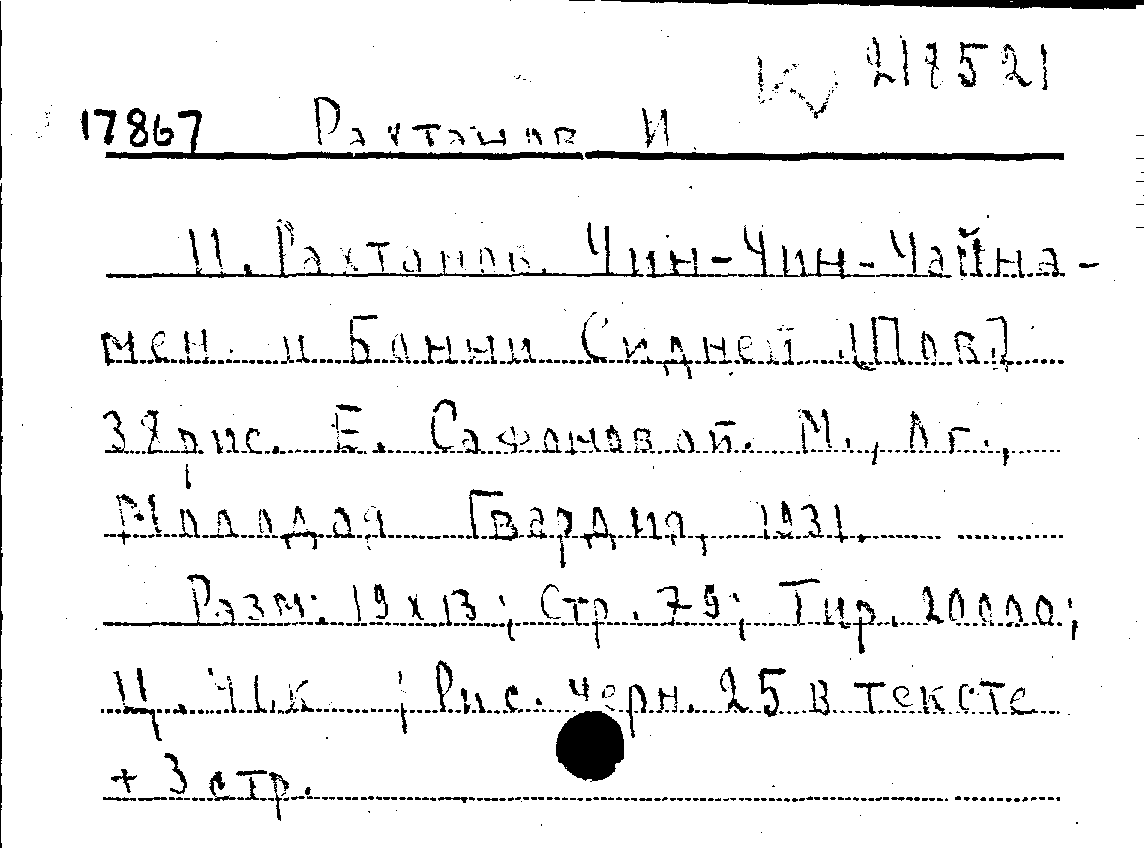 К 218521
17867 Рахтанов И.
И. Рахтанов. Чин-Чин-Чайна-
мен. и Бонни Сидней. [Пов.]
38 рис. Е. Сафоновой. М., Лг.,
Молодая Гвардия, 1931.
Разм: 19х13; Стр. 79; Тир. 20000;
Ц. 41.к ; Рис. черн. 25 в тексте
+ 3 стр.